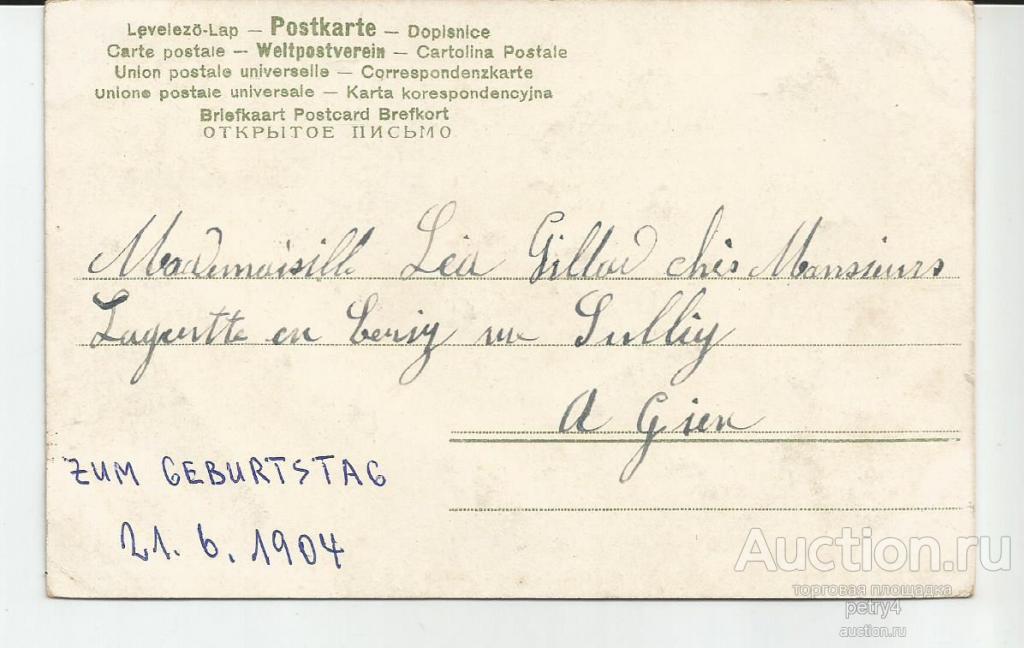 Levelező-Lap — Postkarte — Dopisnice
Carte postale — Weltpostverein — Cartolina Postale
Union postale universelle — Correspondenzkarte
Unione postale universale — Karta korespondencyjna
Briefkaart Postcard Brefkort
ОТКРЫТОЕ ПИСЬМО
Mademoisille Léa Gillad chès Monsieurs
en berry rue Sulliy
A Gien
ZUM GEBURTSTAG
21. 6. 1904
Auction.ru
торговая площадка
petry4
auction.ru